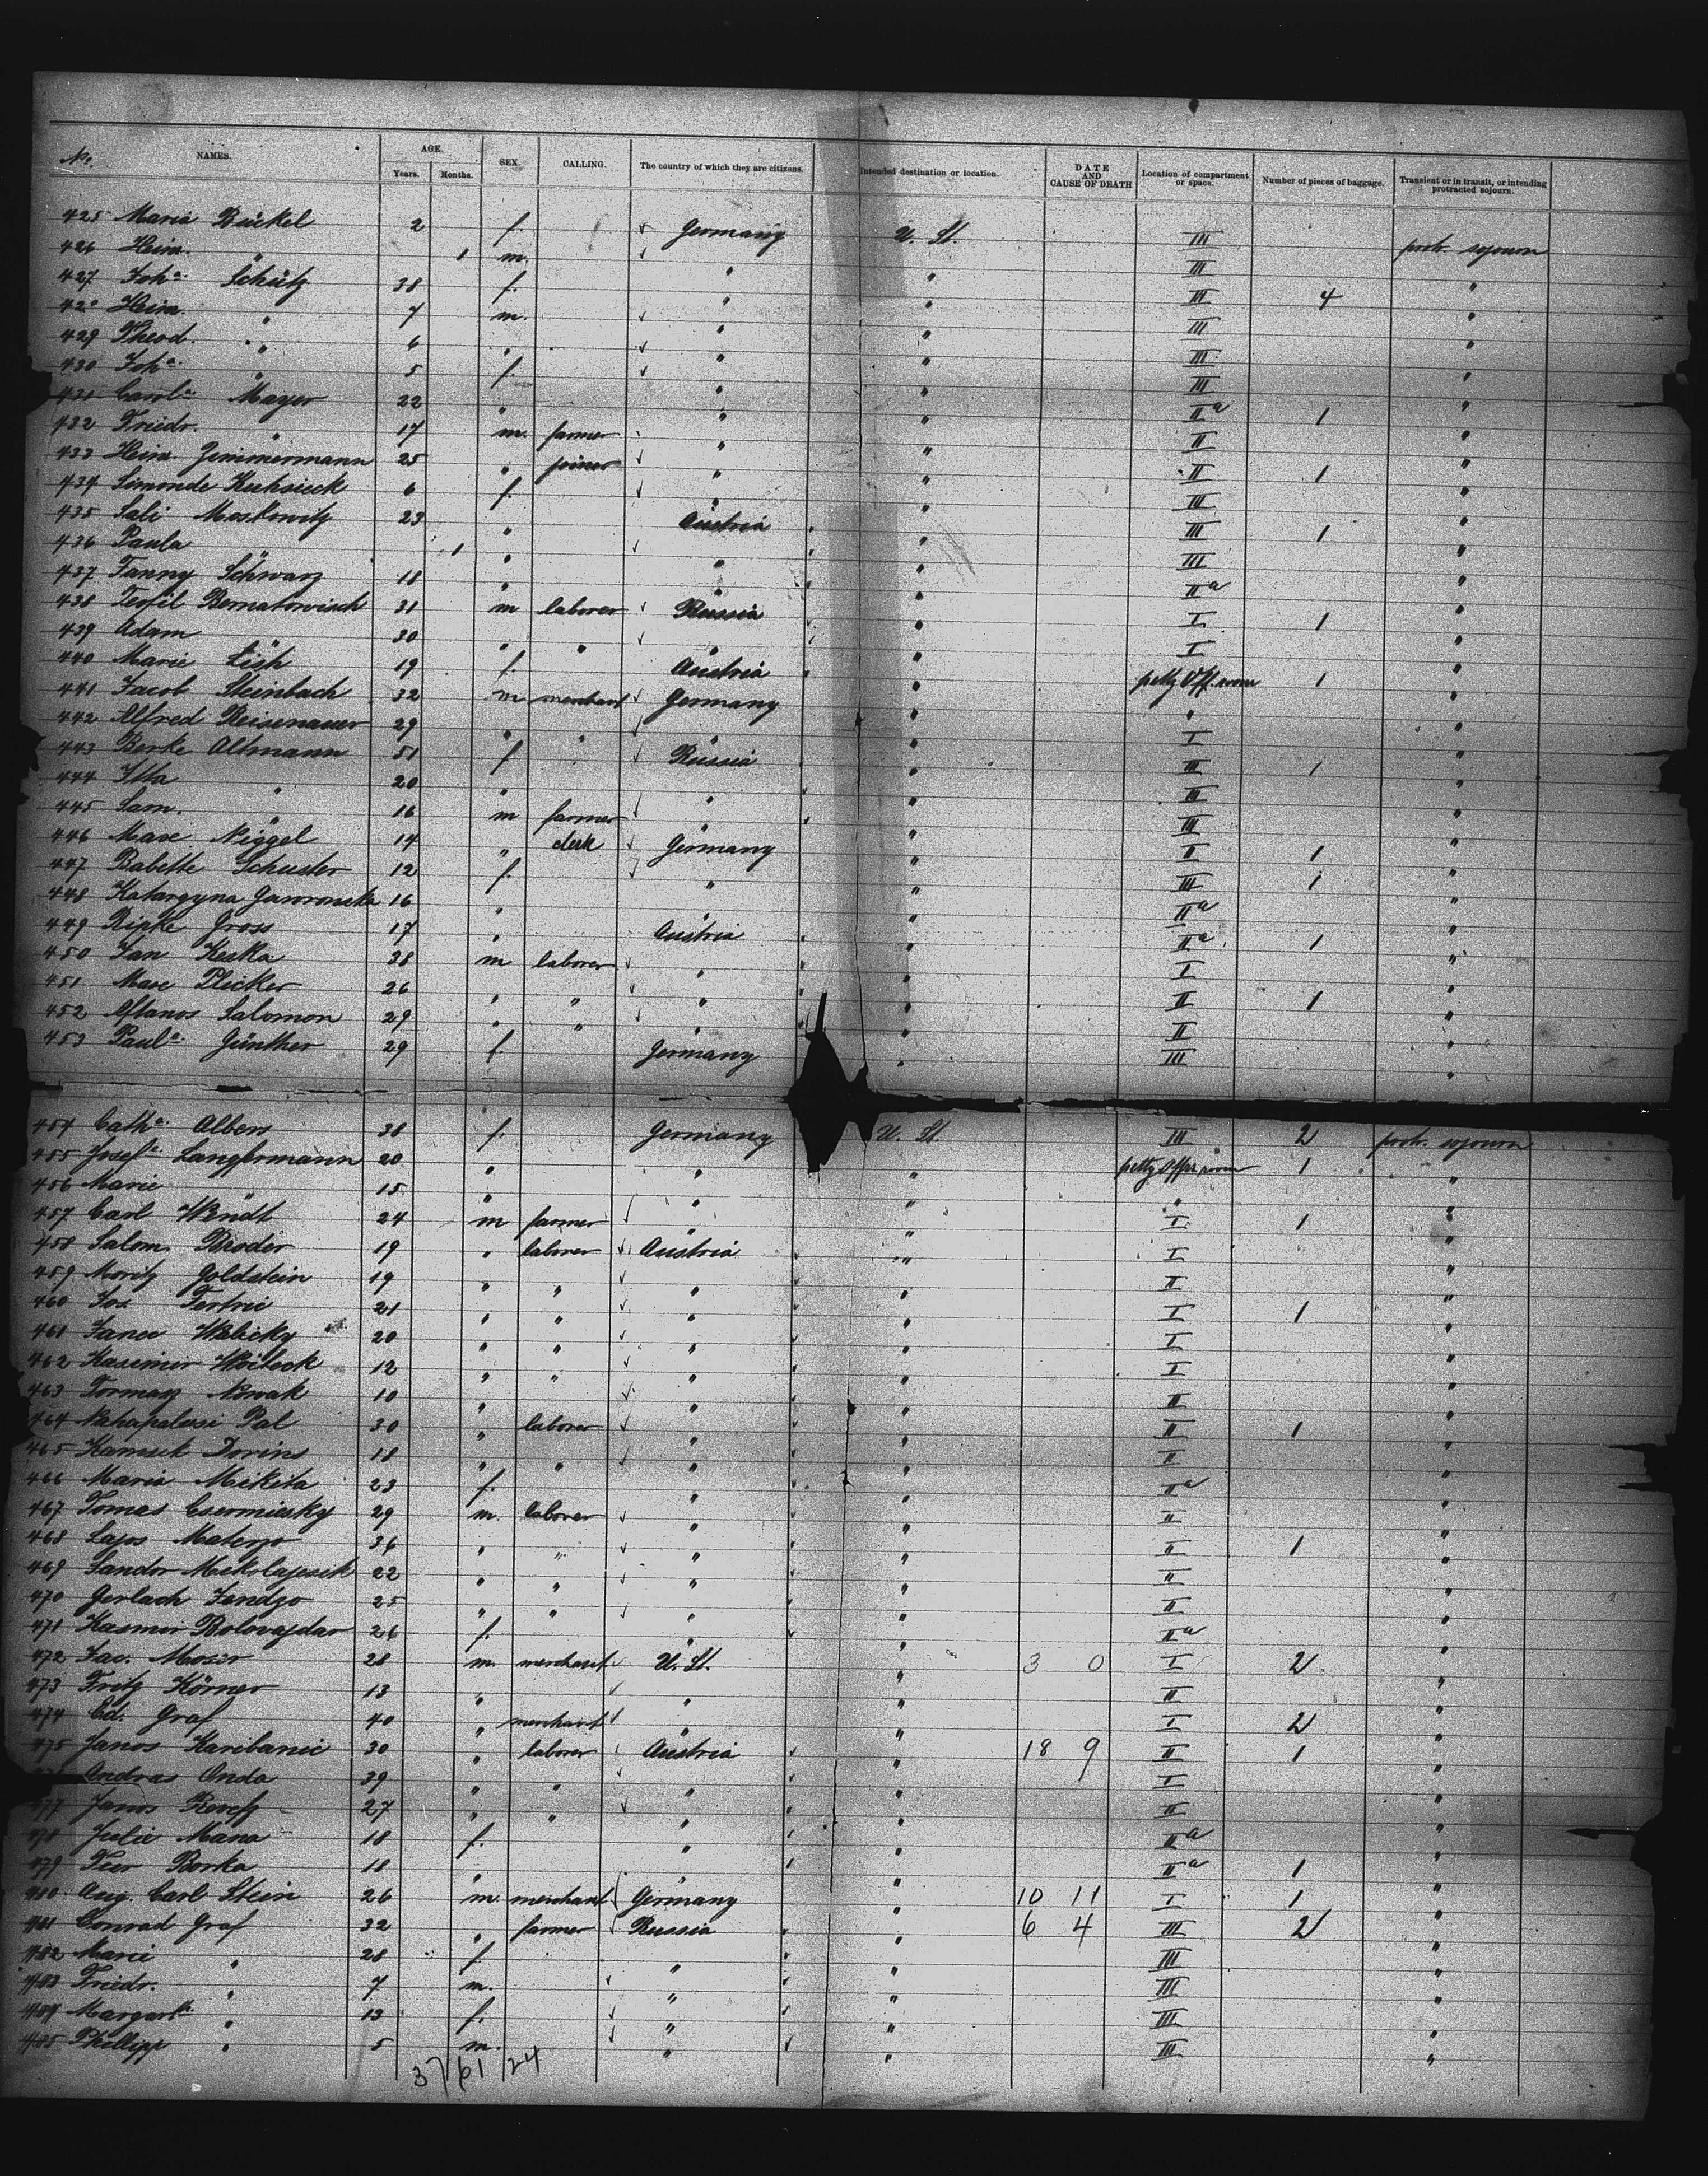 No. NAMES. AGE. Years. Months. SEX. CALLING. The country of which they are citizens. Intended destination or location. DATE AND CAUSE OF DEATH Location of compartment or space. Number of pieces of baggage. Transient or in transit, or intending protracted sojourn.
425 Maria Bückel 2 f. Germany U. St. III protr. sojourn
426 Heinr. " 1 m. " " III "
427 Joha. Schütz 38 f. " " III 4 "
428 Heinr. " 7 m. " " III "
429 Theod. " 6 " " " III "
430 Joha. " 5 f. " " III "
431 Carola. Mayer 22 " " " IIa 1 "
432 Friedr. " 17 m. farmer " " II "
433 Heinr. Zimmermann 25 " joiner " " II 1 "
434 Simonde Kuhsieck 6 f. " " III "
435 Sali Moskowitz 23 " Austria " III 1 "
436 Paula " 1 " " " III "
437 Fanny Schwarz 18 " " " IIa "
438 Teofil Bernatowisch 31 m laborer Russia " I 1 "
439 Adam " 30 " " " " I "
440 Marie Lish 19 f. Austria " petty Off. room 1 "
441 Jacob Steinbach 32 m merchant Germany " " "
442 Alfred Reisenauer 29 " " " " I "
443 Berke Altmann 51 f Russia " III 1 "
444 Itta " 20 " " " III "
445 Sam. " 16 m farmer " " III "
446 Max Niggel 14 " clerk Germany " II 1 "
447 Babette Schuster 12 f. " " III 1 "
448 Katarzyna Jaworonska 16 " " " IIa "
449 Ripke Gross 17 " Austria " IIa 1 "
450 Jan Keska 38 m laborer " " I "
451 Max Plicker 26 " " " " II 1 "
452 Aftanos Salomon 29 " " " " II "
453 Paula. Günther 29 f. Germany " III "
454 Catha. Albers 38 f. Germany U. St. III 2 protr. sojourn
455 Josefa. Langermann 20 " " " petty Offrs. room 1 "
456 Marie " 15 " " " " "
457 Carl Wendt 24 m farmer " " I 1 "
458 Salom. Broder 19 " laborer Austria " I "
459 Moritz Goldstein 19 " " " " II "
460 Jos. Tertric 21 " " " " I 1 "
461 Janci Welicky 20 " " " " I "
462 Kasimir Woiteck 12 " " " " I "
463 Tormasz Nowak 10 " " " II "
464 Pal 30 " laborer " " II 1 "
465 Kamsek Dorins 18 " " " " II "
466 Maria Mikita 23 f. " " IIa "
467 Tomas Csermiesky 29 m. laborer " " II "
468 Lajos Materzo 36 " " " " II 1 "
469 Sandor Mikolajesik 22 " " " " II "
470 Gerlach Jendzo 25 " " " " II "
471 Kasmir Bolovajdar 26 f. " " IIa "
472 Jac. Moser 28 m. merchant U. St. " 3 0 I 2 "
473 Fritz Körner 13 " " " II "
474 Ed. Graf 40 " merchant " " I 2 "
475 Janos Karibanic 30 " laborer Austria " 18 9 II 1 "
Andras Onda 39 " " " " I "
477 Janos 27 " " " " II "
478 Julie Mana 18 f. " " IIa "
479 Borka 18 " " " IIa 1 "
480 Aug. Carl Stein 26 m. merchant Germany " 10 11 I 1 "
481 Conrad Graf 32 " farmer Russia " 6 4 III 2 "
482 Marie " 28 f. " " III "
483 Friedr. " 7 m. " " III "
484 Margarta. " 13 f. " " III "
485 Phillipp " 5 m. " " III "
37/61/24